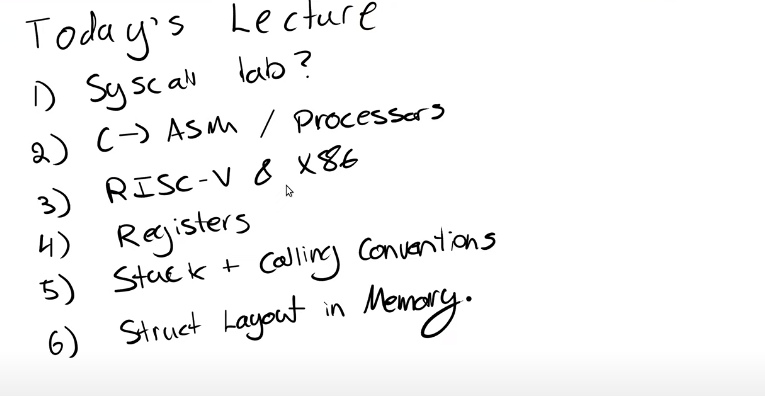 Today's Lecture
1) Syscall lab?
2) C -> ASM / Processors
3) RISC-V & x86
4) Registers
5) Stack + Calling Conventions
6) Struct Layout in Memory.